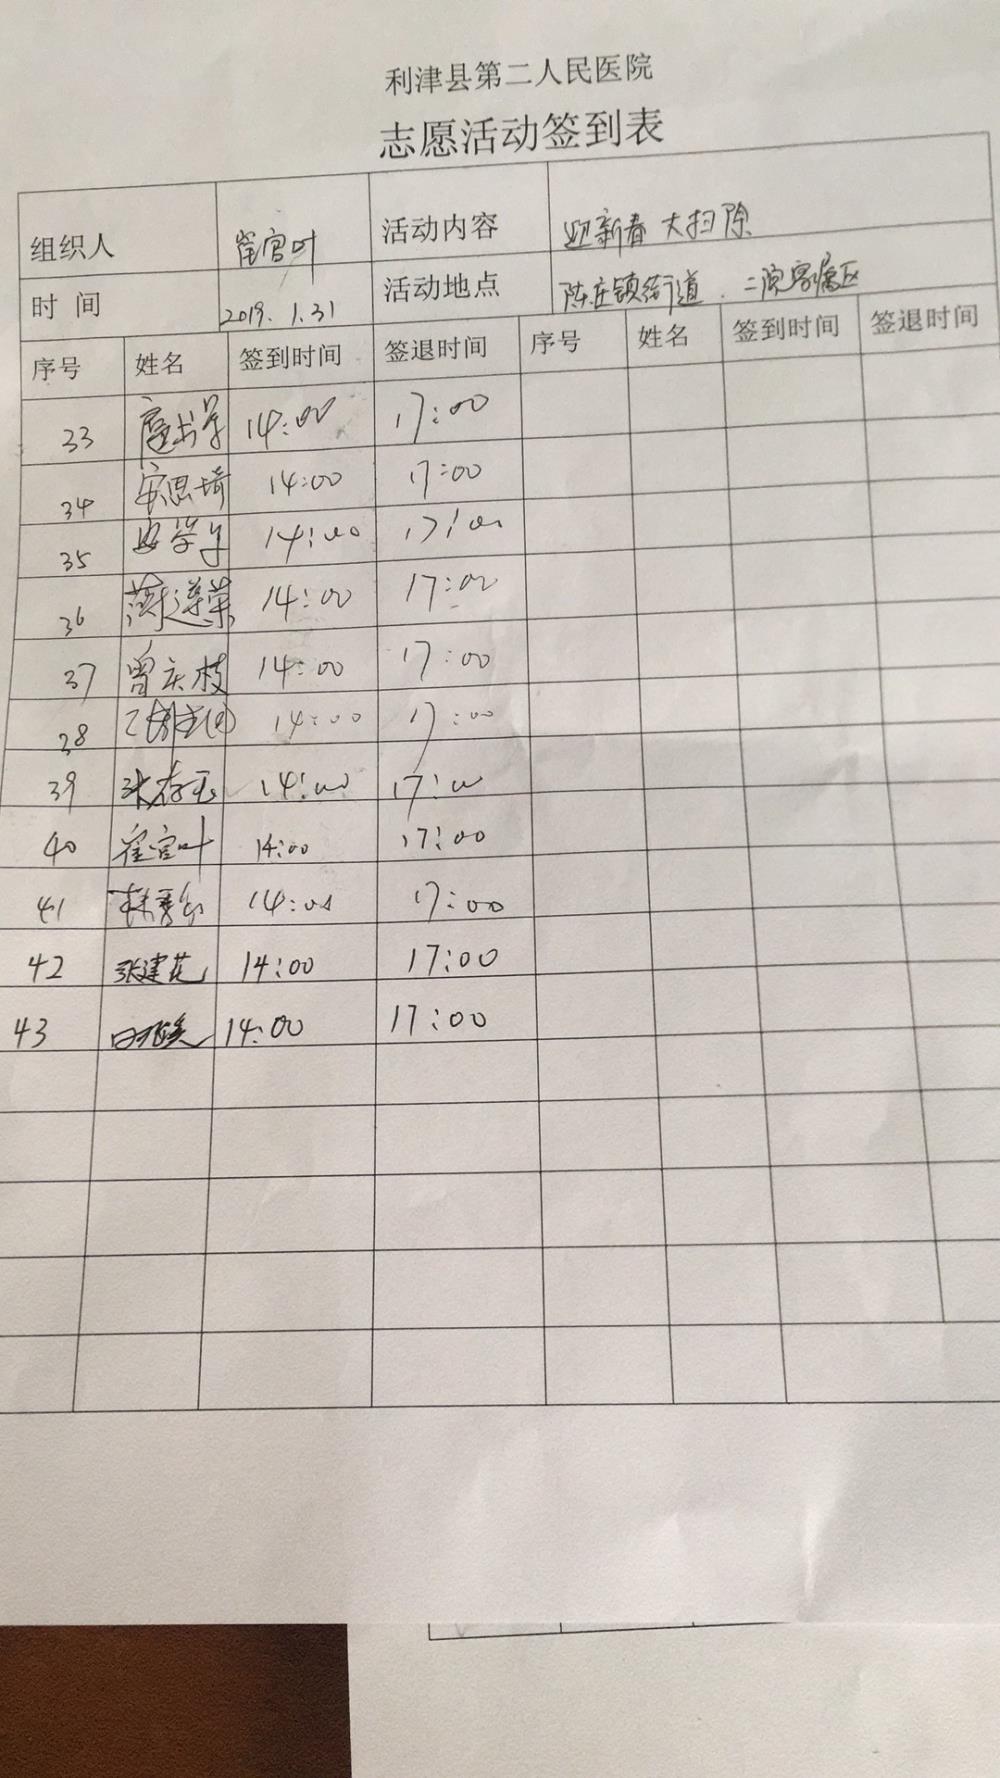 利津县第二人民医院
志愿活动签到表
组织人 崔宫叶 活动内容 迎新春 大扫除
时 间 2019. 1.31 活动地点 陈庄镇街道. 二院家属区
序号 姓名 签到时间 签退时间 序号 姓名 签到时间 签退时间
33 14:00 17:00
34 安思琦 14:00 17:00
35 14:00 17:00
36 14:00 17:00
37 曾庆枝 14:00 17:00
38 14:00 17:00
39 14:00 17:00
40 崔宫叶 14:00 17:00
41 14:00 17:00
42 张建花 14:00 17:00
43 14:00 17:00